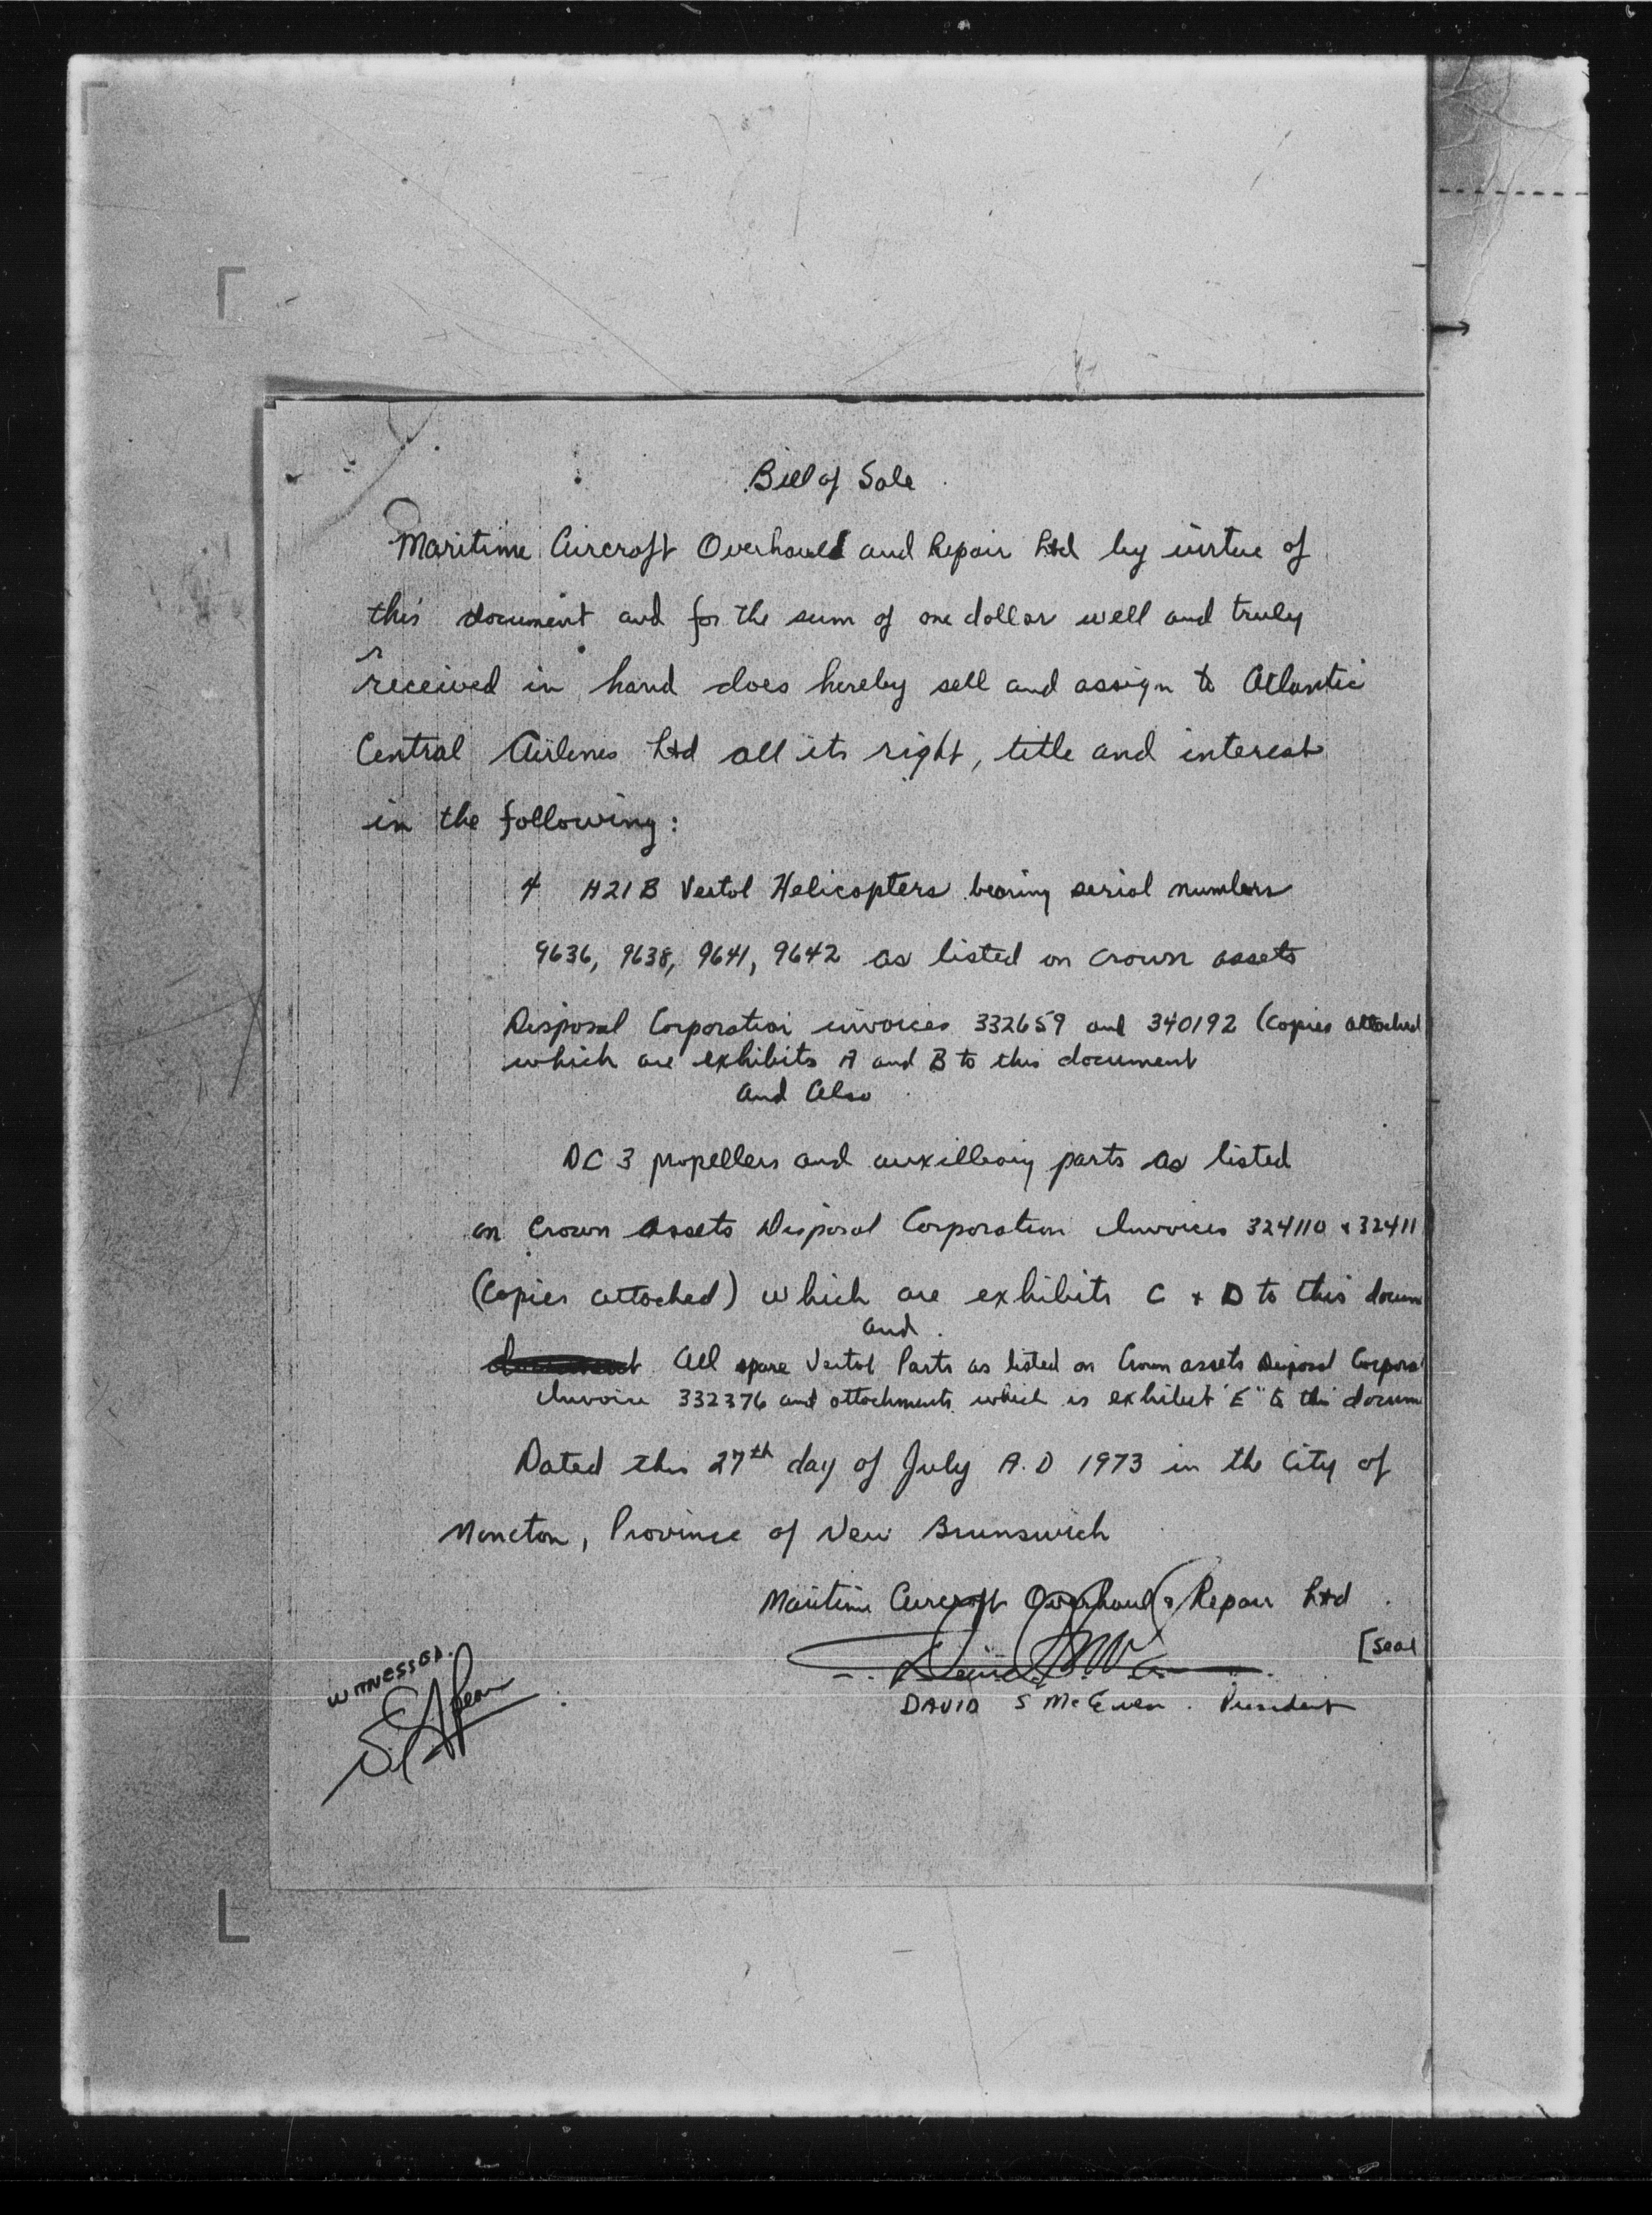 Bill of Sale
Maritime Aircraft Overhaul and Repair Ltd by virtue of
this document and for the sum of one dollar well and truly
received in hand does hereby sell and assign to Atlantic
Central Airlines Ltd all its right, title and interest
in the following:
4 H21B Vertol Helicopters bearing serial numbers
9636, 9638, 9641, 9642 as listed on Crown assets
Disposal Corporation invoices 332659 and 340192 (Copies attached
which are exhibits A and B to this document
and Also
DC 3 propellers and auxilliary parts as listed
on Crown Assets Disposal Corporation Invoices 324110 & 32411
(Copies attached) which are exhibits C & D to this docum
and
All spare Vertol Parts as listed on Crown assets Disposal Corpora
Invoice 332376 and attachments which is exhibit "E" to this docum
Dated this 27th day of July A.D 1973 in the City of
Moncton, Province of New Brunswick
Maritime Aircraft Overhaul & Repair Ltd
[Seal
WITNESSED.
DAVID S McEwen. President